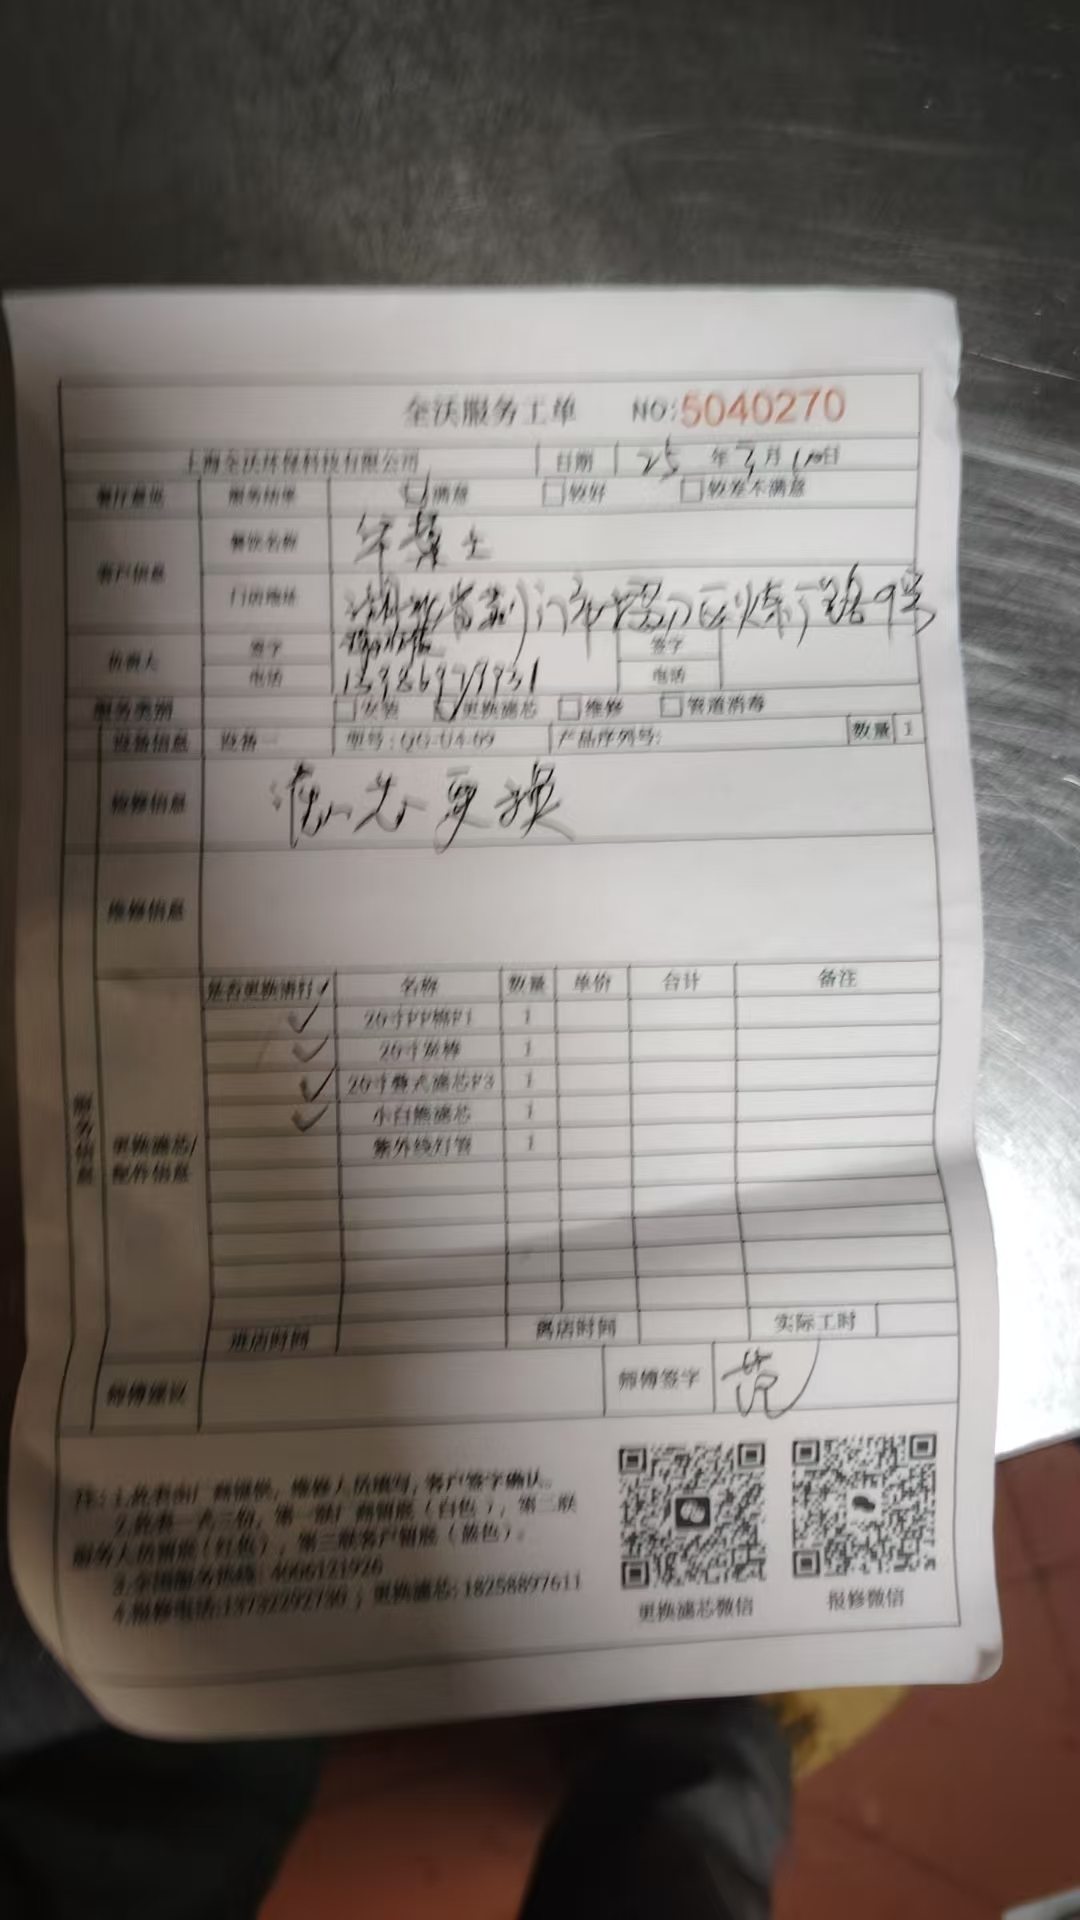 全沃服务工单 NO:5040270
上海全沃环保科技有限公司 日期 25 年 3 月 10日
餐厅意见 服务结果 满意 较好 较差不满意
客户信息 餐饮名称 华莱士
门店地址 湖北省荆门市掇刀区炼厂路9号
负责人 签字 签字
电话 13986979931 电话
服务类别 安装 更换滤芯 维修 管道消毒
设备信息 设备一 型号:QG-U4-09 产品序列号: 数量 1
检修信息 滤芯更换
维修信息
服务信息
是否更换请打✓ 名称 数量 单价 合计 备注
✓ 20寸PP棉P1 1
✓ 20寸炭棒 1
✓ 20寸叠式滤芯P3 1
✓ 小白熊滤芯 1
紫外线灯管 1
更换滤芯/
配件信息
进店时间 离店时间 实际工时
师傅建议 师傅签字 范
注:1.此表由厂商提供,维修人员填写,客户签字确认。
2.此表一式三份,第一联厂商留底(白色),第二联
服务人员留底(红色),第三联客户留底(蓝色)。
3.全国服务热线:4006121926
4.报修电话:13732292730;更换滤芯:18258897611
更换滤芯微信 报修微信